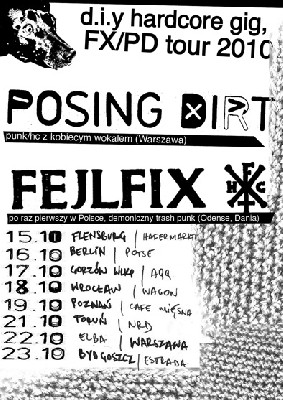 d.i.y hardcore gig,
FX/PD tour 2010
POSING DIRT
punk/hc z kobiecym wokalem (Warszawa)
FEJLFIX
F
H C
G
po raz pierwszy w Polsce, demoniczny trash punk (Odense, Dania)
15.10 FLENSBURG / HAFERMARKT
16.10 BERLIN / POTSE
17.10 GORZÓW WLKP /
18.10 WROCŁAW / WAGON
19.10 POZNAŃ / CAFE MIĘSNA
21.10 TORUŃ / NRD
22.10 ELBA / WARSZAWA
23.10 BYDGOSZCZ / ESTRADA